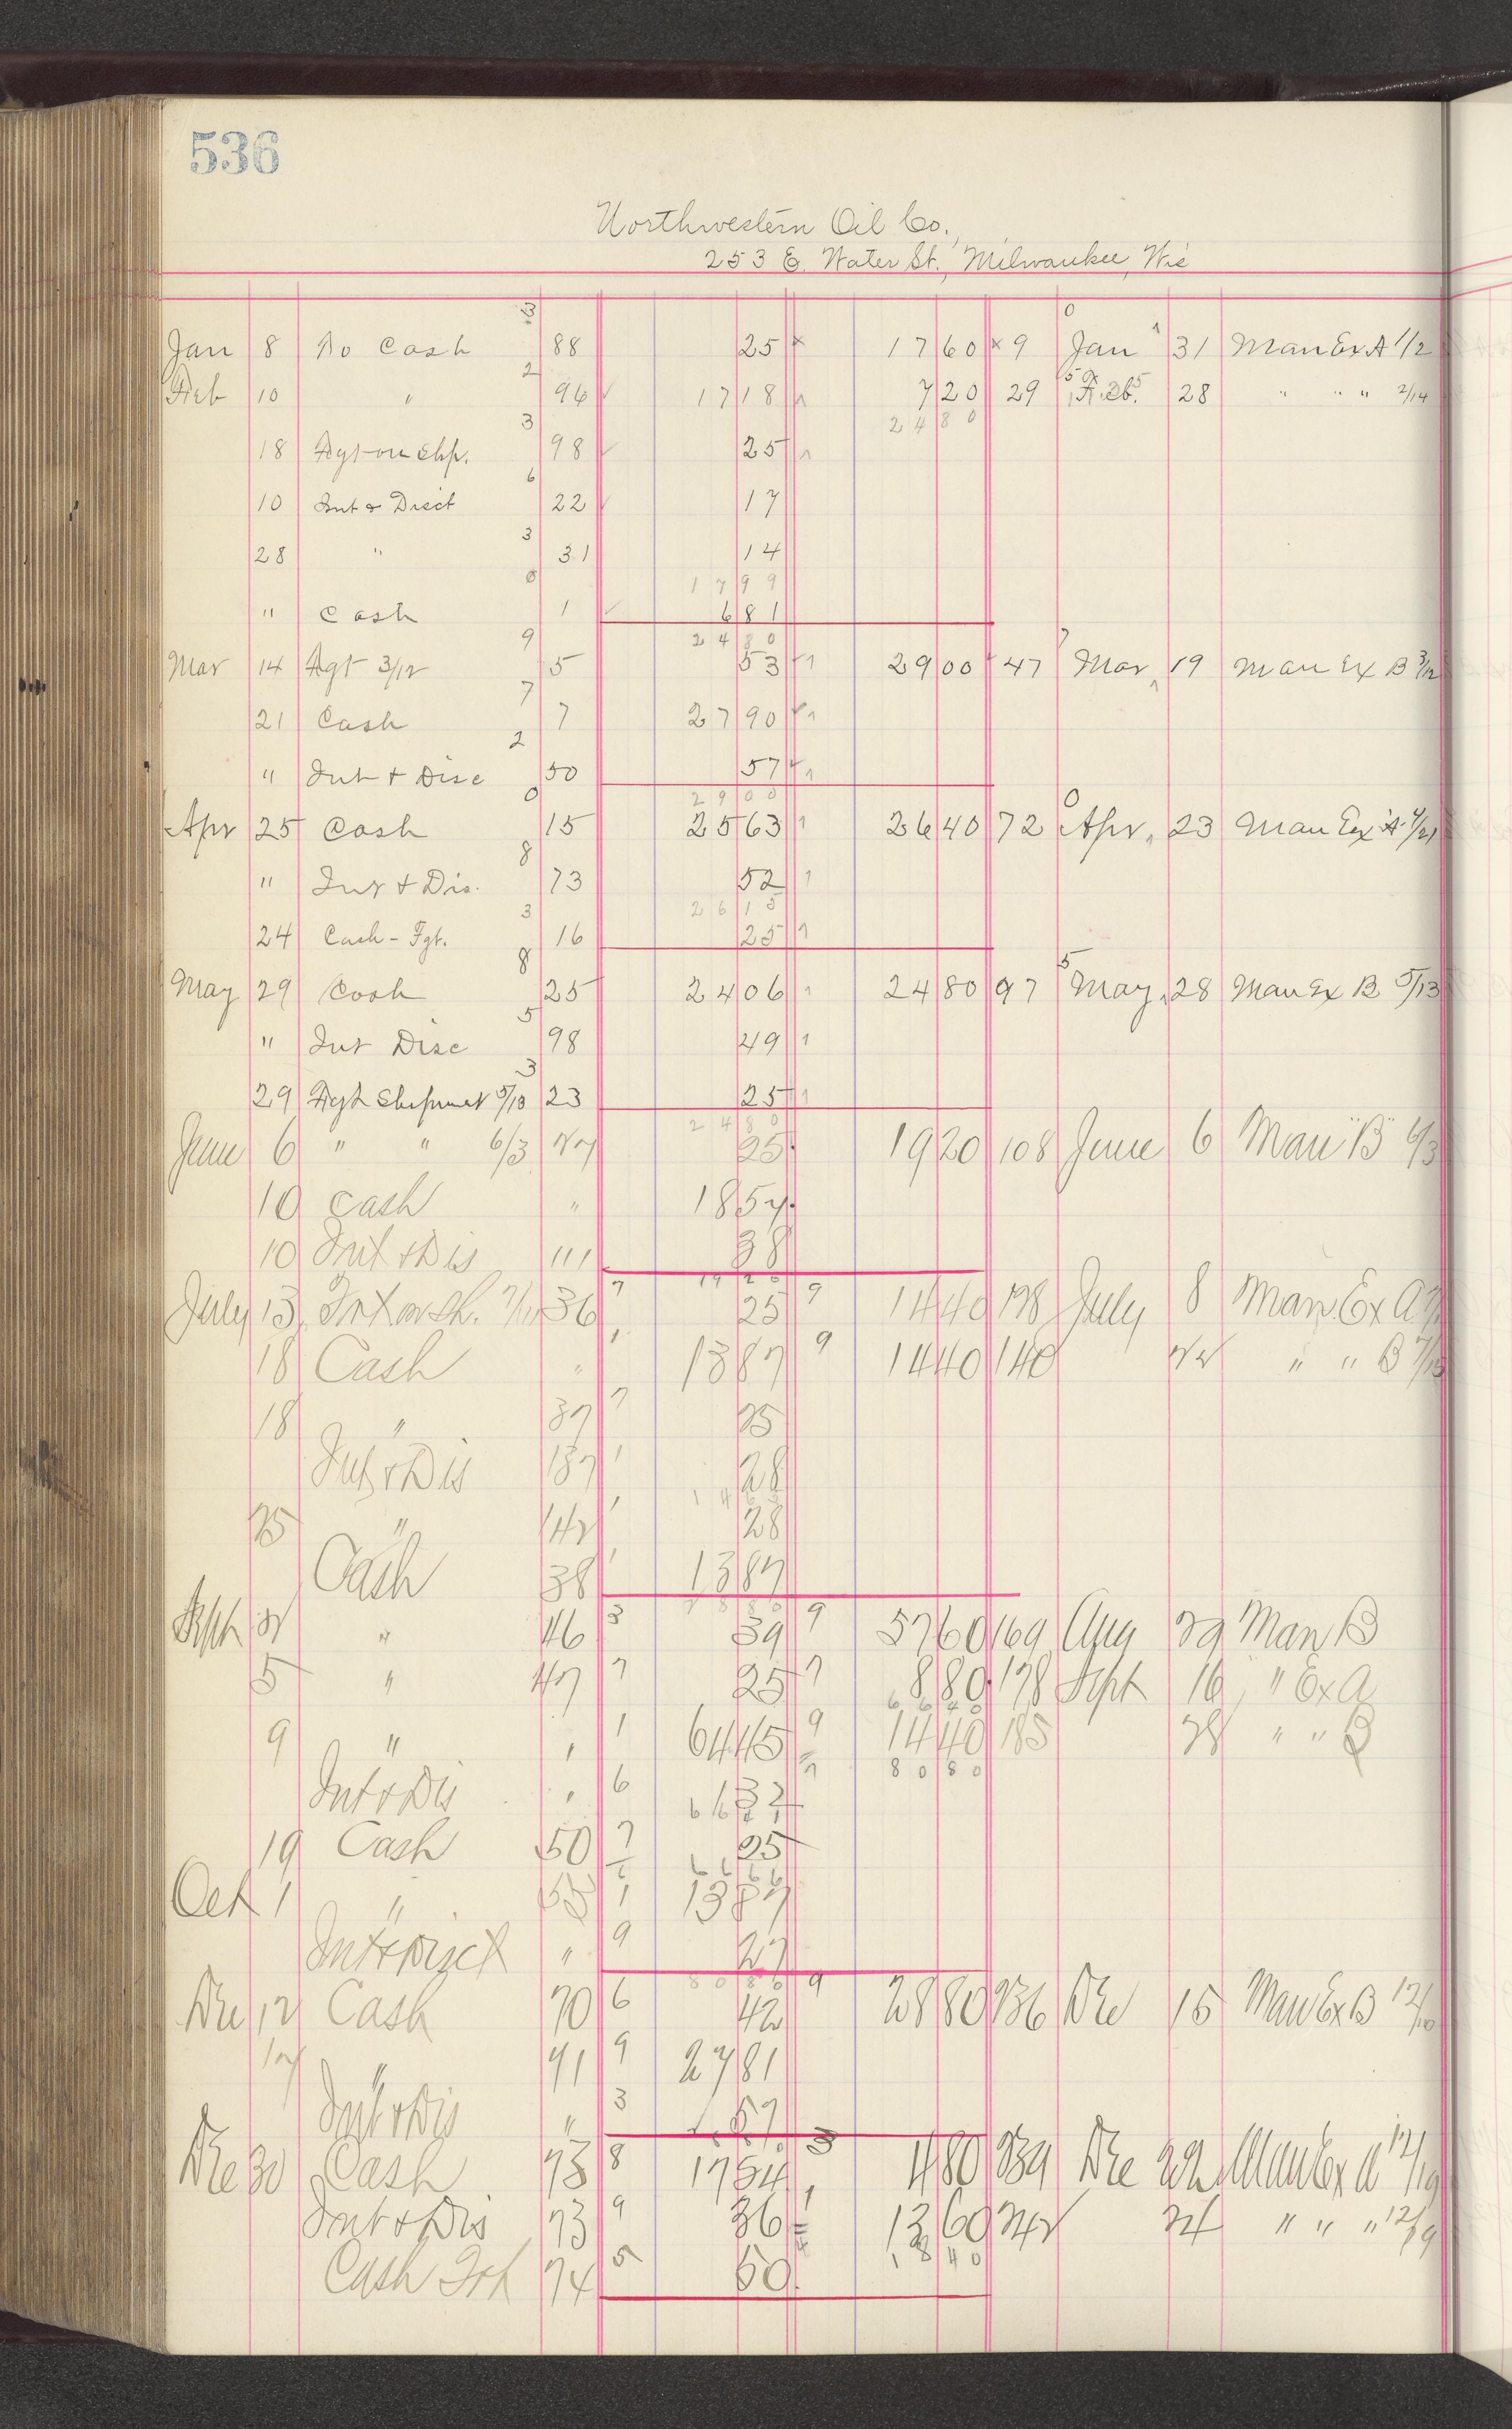 536
Northwestern Oil Co.,
253 E. Water St., Milwaukee, Wis
3 0
Jan 8 To Cash 88 25 x 17 60 x 9 Jan 31 Man Ex A 1/2
2
Feb 10 " 96 17 18 7 20 29 Feb. 28 " " " 2/14
3 24 80
18 Fgt on Shp. 98 25
6
10 Int & Disct 22 17
3
28 " 31 14
0 17 99
" Cash 1 6 81
9 24 80 7
Mar 14 Fgt 3/12 5 53 29 00 47 Mar 19 Man Ex B 3/12
7
21 Cash 7 27 90
2
" Int & Disc 50 57
0 29 00 0
Apr 25 Cash 15 25 63 26 40 72 Apr, 23 Man Ex A 4/21
8
" Int & Dis. 73 52
3 26 15
24 Cash - Fgt. 16 25
8 5
May 29 Cash 25 24 06 24 80 97 May 28 Man Ex B 5/13
5
" Int Disc 98 49
3
29 Fght Shipment 5/13 23 25
24 80
June 6 " " 6/3 25 19 20 108 June 6 Man "B" 6/3
10 Cash " 18 57
10 Int & Dis 111 38
7 19 20 9
July 13 36 25 14 40 128 July 8 Man. Ex A
18 Cash " 1 13 87 9 14 40 140 " " B 7/15
18 " 37 7 25
Int & Dis 137 1 28
25 " 142 1 28
Cash 38 1 13 87
Sept " 46 3 39 9 57 60 169 Aug 29 Man B
5 " 47 7 25 7 8 80 178 Sept 16 " Ex A
66 40
9 " " 1 64 45 9 14 40 185 28 " " B
80 80
Int & Dis " 6 1 32
19 Cash 50 7 25
66 66
Oct 1 " 53 1 13 87
Int & Disct " 9 27
80 80
Dec 12 Cash 70 6 42 9 28 80 236 Dec 15 Man Ex B 12/10
17 " 71 9 27 81
Int & Dis " 3 57
Dec 30 Cash 73 8 17 54 3 4 80 239 Dec 22 Man Ex A 12/19
Int & Dis 73 9 36 13 60 242 24 " " " 12/19
18 40
Cash Frt 74 5 50